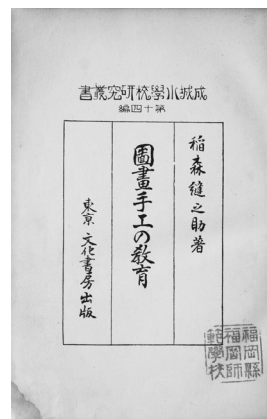 成城小學校研究叢書
第十四編
稲森縫之助著
圖畫手工の教育
東京 文化書房出版
福岡縣
福岡師
範學校